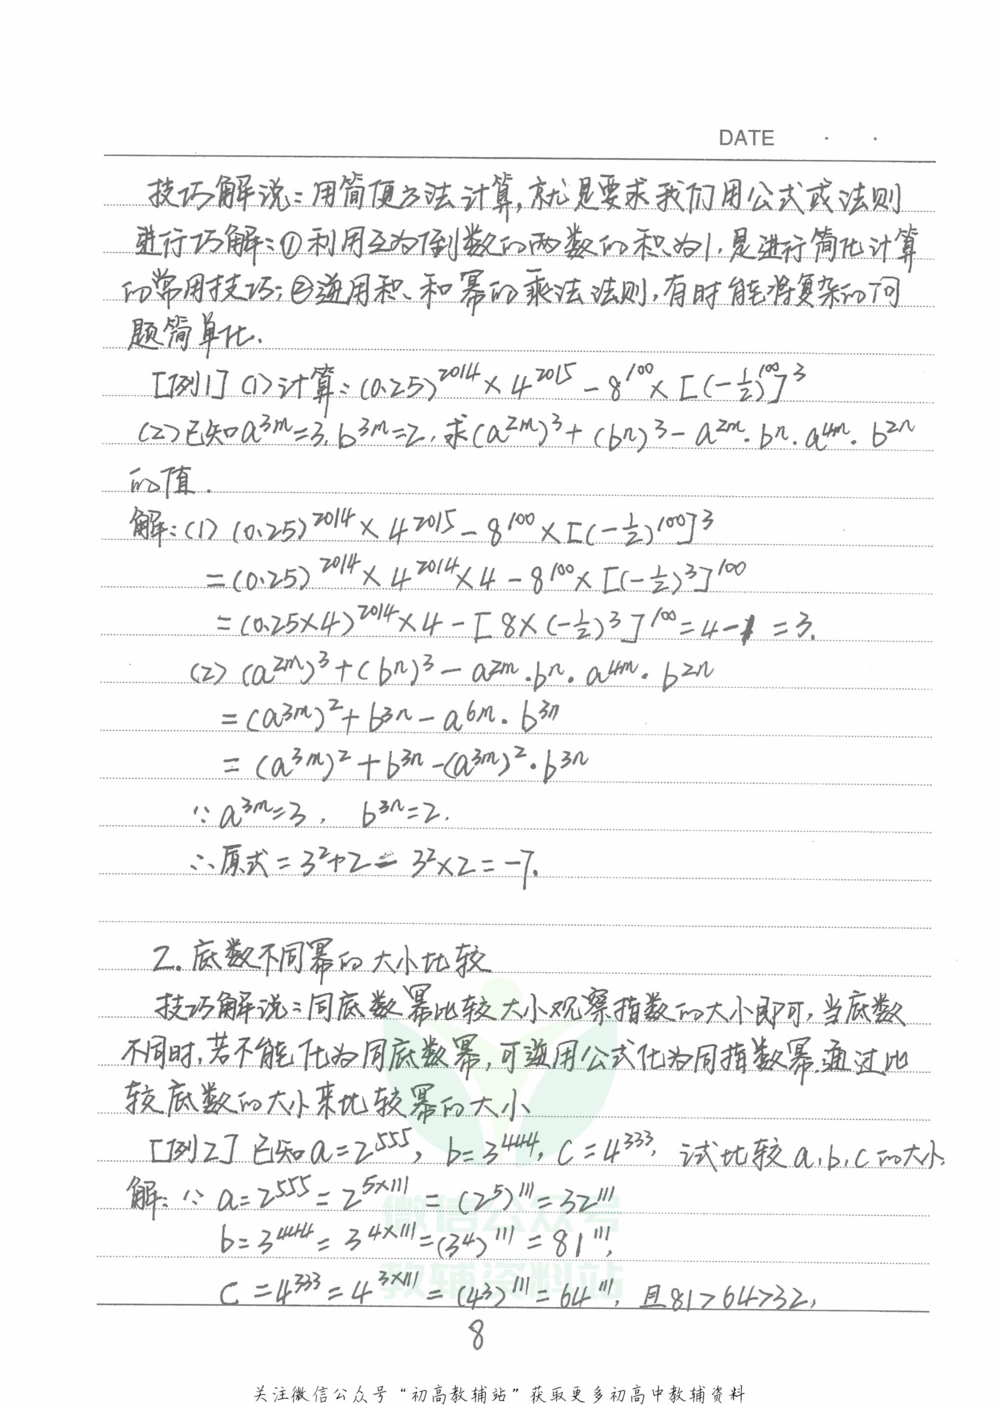 DATE · ·
技巧解说:用简便方法计算,就是要求我们用公式或法则
进行巧解:①利用互为倒数的两数的积为1,是进行简化计算
的常用技巧;②逆用积、和幂的乘法法则,有时能将复杂的问
题简单化.
[例1](1)计算:(0.25)^2014×4^2015-8^100×[(-1/2)^100]^3
(2)已知a^3m=3,b^3m=2,求(a^2m)^3+(b^n)^3-a^2m·b^n·a^4m·b^2n
的值.
解:(1)(0.25)^2014×4^2015-8^100×[(-1/2)^100]^3
=(0.25)^2014×4^2014×4-8^100×[(-1/2)^3]^100
=(0.25×4)^2014×4-[8×(-1/2)^3]^100=4-1=3.
(2)(a^2m)^3+(b^n)^3-a^2m·b^n·a^4m·b^2n
=(a^3m)^2+b^3n-a^6m·b^3n
=(a^3m)^2+b^3n-(a^3m)^2·b^3n
∵a^3m=3, b^3n=2.
∴原式=3^2+2-3^2×2=-7.
2.底数不同幂的大小比较
技巧解说:同底数幂比较大小观察指数的大小即可,当底数
不同时,若不能化为同底数幂,可逆用公式化为同指数幂,通过比
较底数的大小来比较幂的大小
[例2]已知a=2^555,b=3^444,c=4^333,试比较a,b,c的大小.
解:∵a=2^555=2^5×111=(2^5)^111=32^111
b=3^444=3^4×111=(3^4)^111=81^111,
c=4^333=4^3×111=(4^3)^111=64^111,且81>64>32,
微信公众号
教辅资料站
8
关注微信公众号“初高教辅站”获取更多初高中教辅资料